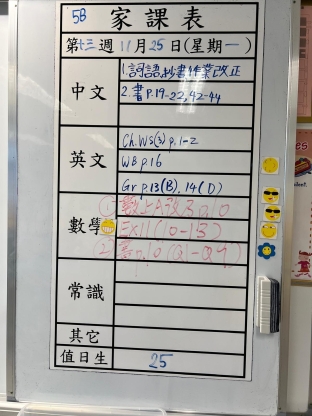 5B 家課表
第十三週 11月25日(星期一)
中文
1.詞語、抄書作業改正
2.書P.19-22,42-44
英文
Ch.WS(3) p.1-2
WB p.16
Gr p.13(B), 14(D)
數學
① 數上A改正p.10
Ex11(10-13)
② 書p.10(Q1-Q4)
常識
其它
值日生 25